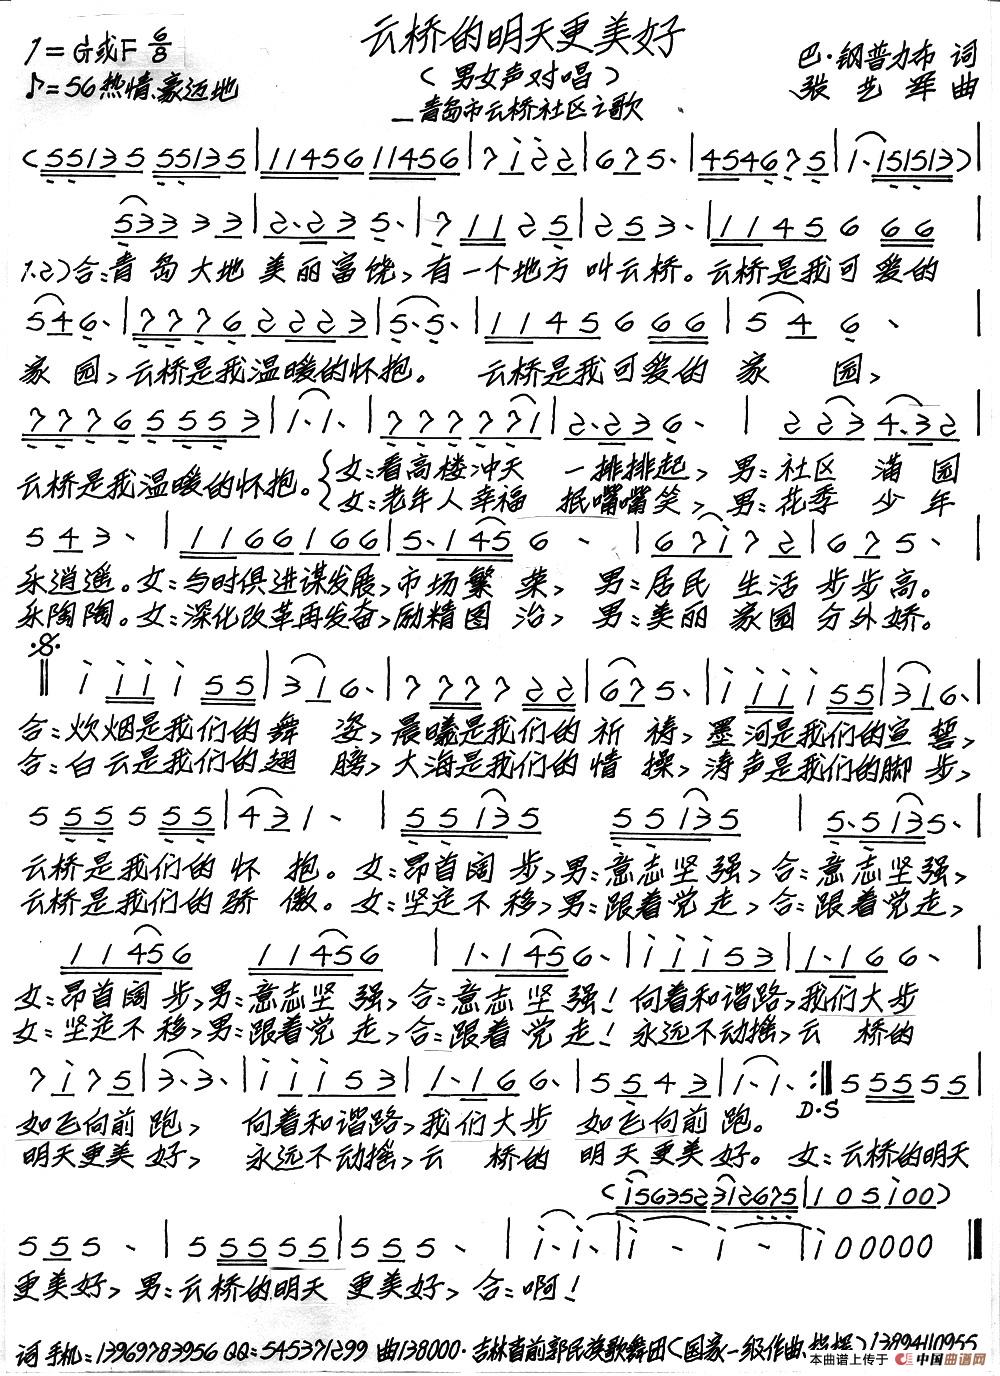 云桥的明天更美好
1=G或F 6/8
(男女声对唱)
巴·钢普力布 词
♪=56 热情、豪迈地
张艺军 曲
—青岛市云桥社区之歌
(55135 55135|11456 11456|7 i 2 2|6 7 5·|4546 7 5|1·151513)|
5 3 3 3 3|2·2 3 5·|7 1 1 2 5|2 5 3·|1 1 4 5 6 6 6|
1.2)合:青岛大地美丽富饶,有一个地方叫云桥。云桥是我可爱的
5 4 6·|7 7 7 6 2 2 2 3|5·5·|1 1 4 5 6 6 6|5 4 6·|
家园,云桥是我温暖的怀抱。云桥是我可爱的家园,
7 7 7 6 5 5 5 3|1·1·|7 7 7 7 7 1|2·2 3 6·|2 2 3 4·3 2|
云桥是我温暖的怀抱。
女:看高楼冲天一排排起,男:社区满园
女:老年人幸福抿嘴嘴笑,男:花季少年
5 4 3·|1 1 6 6 1 6 6|5·1 4 5 6·|6 7 i 7 2|6 7 5·|
乐逍遥。女:与时俱进谋发展,市场繁荣,男:居民生活步步高。
乐陶陶。女:深化改革再发奋,励精图治,男:美丽家园分外娇。
i i i i i 5 5|3 1 6·|7 7 7 7 7 2 2|6 7 5·|i i i i i 5 5|3 1 6·|
合:炊烟是我们的舞姿,晨曦是我们的祈祷,墨河是我们的宣誓,
合:白云是我们的翅膀,大海是我们的情操,涛声是我们的脚步,
5 5 5 5 5 5 5|4 3 1·|5 5 1 3 5 5 5 1 3 5|5·5 1 3 5·|
云桥是我们的怀抱。女:昂首阔步,男:意志坚强,合:意志坚强,
云桥是我们的骄傲。女:坚定不移,男:跟着党走,合:跟着党走,
1 1 4 5 6 1 1 4 5 6|1·1 4 5 6·|i i i 5 3|1·1 6 6·|
女:昂首阔步,男:意志坚强,合:意志坚强!向着和谐路,我们大步
女:坚定不移,男:跟着党走,合:跟着党走!永远不动摇,云桥的
7 i 7 5|3·3·|i i i 5 3|1·1 6 6·|5 5 4 3|1·1·:‖5 5 5 5 5 5|
D·S
如飞向前跑,向着和谐路,我们大步如飞向前跑。
明天更美好,永远不动摇,云桥的明天更美好。女:云桥的明天
(i56352 312675|1 0 5 i 0 0)
5 5 5·|5 5 5 5 5 5|5 5 5·|i·i·|i - i -|i 0 0 0 0 0‖
更美好,男:云桥的明天更美好,合:啊!
词手机:13969783956 QQ:545371299 曲138000·吉林省前郭民族歌舞团(国家一级作曲、指挥)13894110955
本曲谱上传于 中国曲谱网